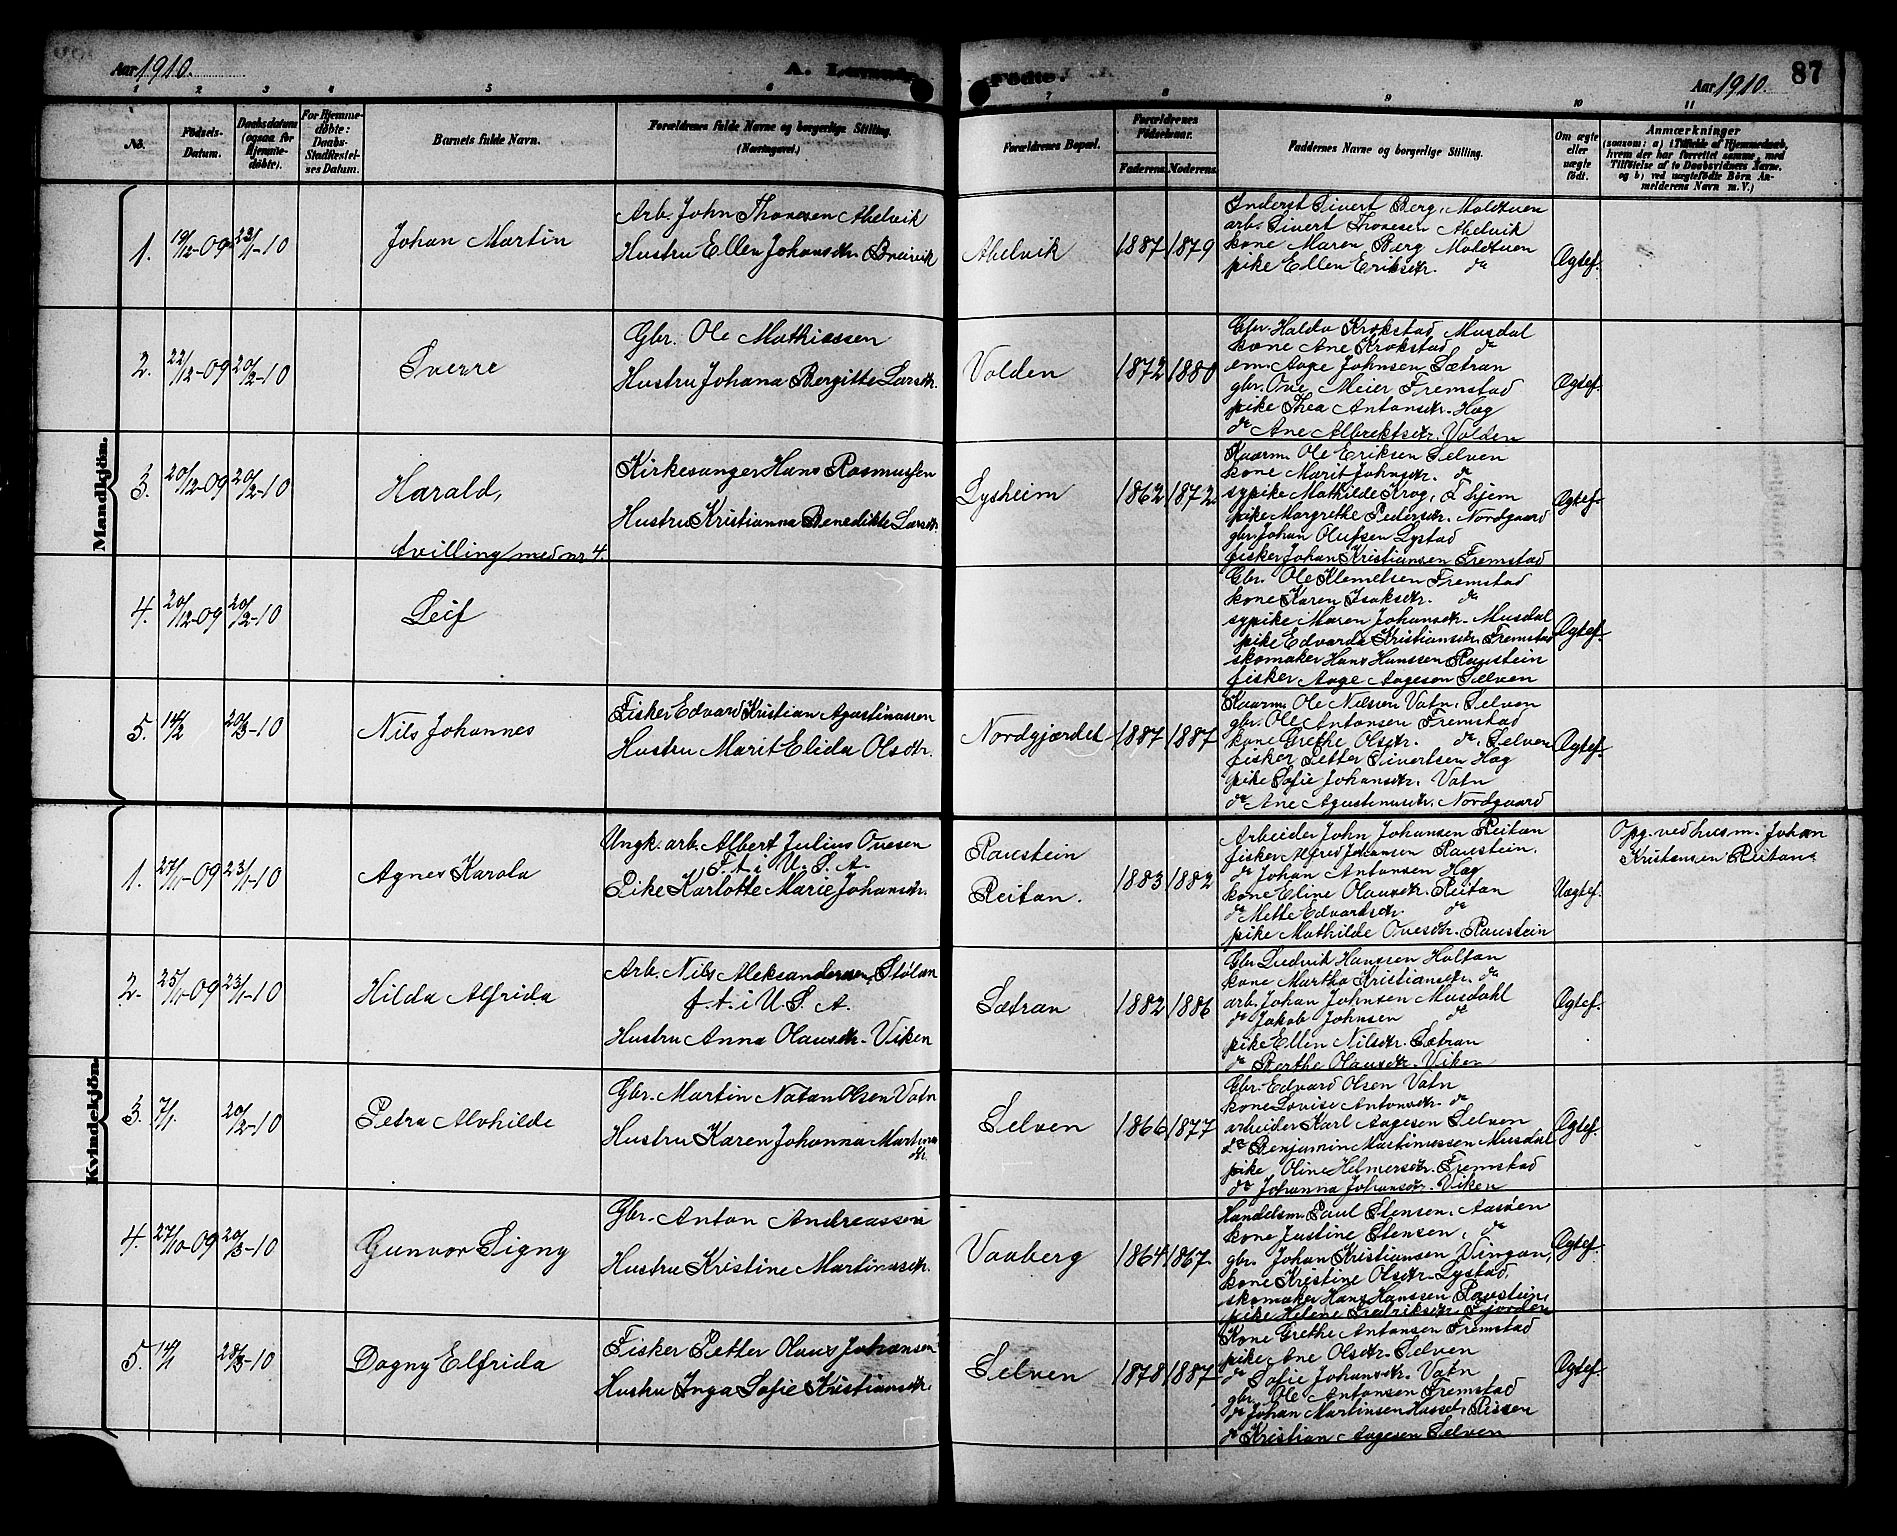 Aar 1910.
A. Levende
Fødte.
Aar 1910.
87
1 2 3 4 5 6 7 8 9 10 11
No.
Fødsels-
Datum.
Daabsdatum
(ogsaa for
Hjemme-
døbte).
For Hjemme-
døbte:
Daabs-
Stadfæstel-
ses Datum.
Barnets fulde Navn.
Forældrenes fulde Navne og borgerlige Stilling.
(Næringsvei.)
Forældrenes Bopæl.
Forældrenes
Fødselsaar.
Faderens. Moderens.
Faddernes Navne og borgerlige Stilling.
Om ægte
eller
uægte
født.
Anmærkninger
(saasom: a) i Tilfælde af Hjemmedaab,
hvem der har forrettet samme, med
Tilføielse af to Daabsvidners Navne,
og b) ved uægtefødte Børn An-
melderens Navn m. V.)
Mandkjøn.
1. 19/12-09 23/1-10
Johan Martin
Arb. John Thonesen Abelvik
Hustru Ellen Johansdtr. Breivik
Abelvik
1887 1879
Inderst Sivert Berg, Moldtuen
arb. Sivert Thonesen Abelvik
kone Maren Berg Moldtuen
pike Ellen Eriksdtr. do
Ægtef.
2. 22/12-09 20/2-10
Sverre
Gbr. Ole Mathiassen
Hustru Johana Bergitte Larsdtr.
Volden
1872 1880
Gbr. Haldo Krokstad Musdal
kone Ane Krokstad do
em. Aage Johnsen Sætran
gbr. Ove Meier Fremstad
pike Thea Antonsdtr. Hag
do Ane Albriktsdtr. Volden
Ægtef.
3. 20/12-09 20/2-10
Harald,
tvilling med nr 4.
Kirkesanger Hans Rasmussen
Hustru Kristianna Benedikte Larsdtr.
Lysheim
1862 1872.
Kaarm. Ole Eriksen Selven
kone Marit Johnsdtr. do
sypike Mathilde Krog, T.hjem
pike Margrethe Pedersdtr. Nordgaard
gbr. Johan Olufsen Lystad
fisker Johan Kristiansen Fremstad
Ægtef.
4. 20/12-09 20/2-10
Leif
Gbr. Ole Klemetsen Fremstad
kone Karen Isaksdtr. do
sypike Maren Johansdtr. Musdal
pike Edvarda Kristiansdtr. Fremstad
skomaker Hans Hanssen Raustein
fisker Aage Aagesen Selven
Ægtef.
5. 14/2 20/3-10
Nils Johannes
Fisker Edvard Kristian Agustinussen
Hustru Marit Elida Olsdtr.
Nordgjærdet
1887 1887
Kaarm. Ole Nilssen Vatn, Selven
gbr. Ole Antonsen Fremstad
kone Grethe Olsdtr. do, Selven
fisker Petter Sivertsen Hag
pike Sofie Johansdtr. Vatn
do Ane Agustinusdtr. Nordgaard
Ægtef.
Kvindekjøn.
1. 27/11-09 23/1-10
Agnes Karola
Ungk. arb. Albert Julius Ovesen
F. t. i U. S. A.
Pike Karlotte Marie Johansdtr.
Raustein
Reitan.
1883 1882
Arbeider John Johansen Reitan
fisker Alfred Johansen Raustein.
do Johan Antonsen Hag
kone Eline Olausdtr. Reitan
do Mette Edvardsdtr. do
pike Mathilde Ovesdtr. Raustein
Uægtef.
Opg. ved husm. Johan
Kristensen Reitan.
2. 25/11-09 23/1-10
Hilda Alfrida
Arb. Nils Aleksandersen, Stølan
f. t. i U. S. A.
Hustru Anna Olausdtr. Viken
Sætran
1882 1886
Gbr. Ludvik Hanssen Holtan
kone Martha Kristiansdtr. do
arb. Johan Johnsen Musdahl
do Jakob Johnsen do
pike Ellen Nilsdtr. Sætran
do Berthe Olausdtr. Viken
Ægtef.
3. 7/1. 20/2-10
Petra Alvhilde
Gbr. Martin Natan Olsen Vatn
Hustru Karen Johanna Martinus
dtr.
Selven
1866 1877
Gbr. Edvard Olsen Vatn
kone Lovise Antonsdtr. do
arbeider Karl Aagesen Selven
do Benjamin Martinussen Musdal
pike Oline Helmersdtr. Fremstad
do Johanna Johansdtr. Viken
Ægtef.
4. 27/10-09 20/3-10
Gunvor Signy
Gbr. Anton Andreassen
Hustru Kristine Martinusdtr.
Vaaberg
1864 1867.
Handelsm. Paul Stensen, Aasøen
kone Justine Stensen, do
gbr. Johan Kristiansen Vingan,
kone Kristine Olsdtr. Lystad,
skomaker Hans Hanssen Raustein,
pike Helene Fredriksdtr. Fjorden
Ægtef.
5. 14/1 28/3-10
Dagny Elfrida
Fisker Petter Olaus Johansen
Hustru Inga Sofie Kristiansdtr.
Selven
1878 1887
Kone Grethe Antonsen Fremstad
pike Ane Olsdtr. Selven
do Sofie Johansdtr. Vatn
gbr. Ole Antonsen Fremstad
do Johan Martinsen Hasset, Rissen
do Kristian Aagesen Selven
Ægtef.